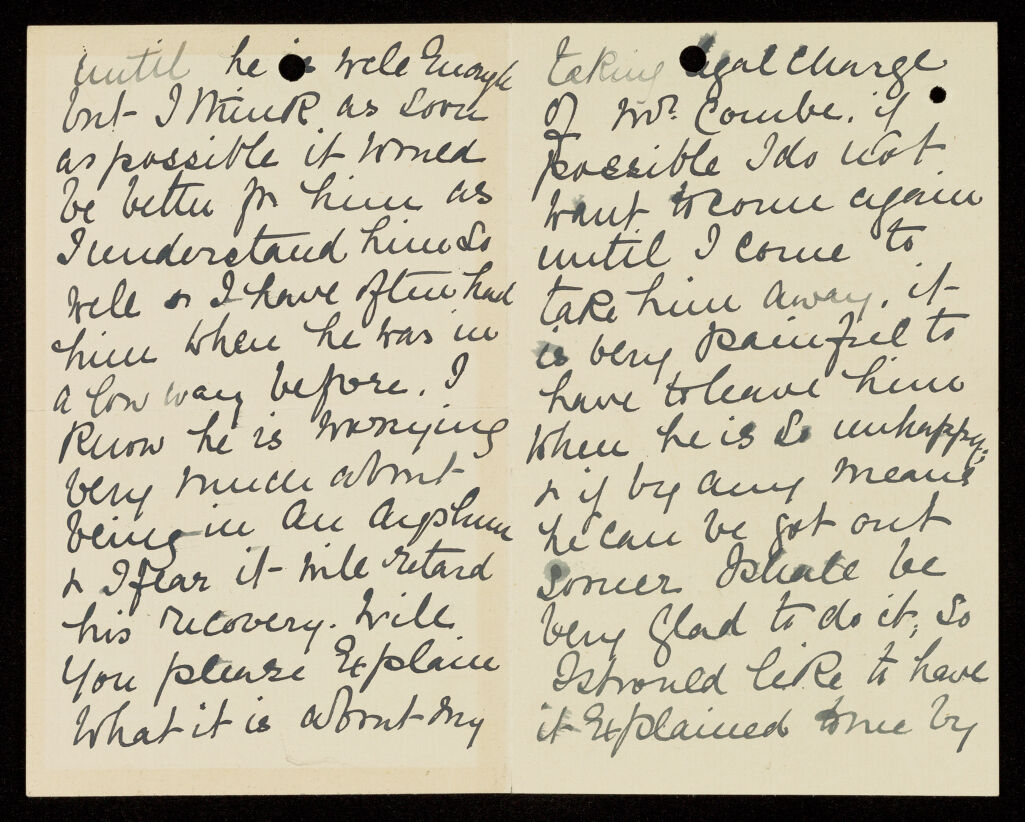 until he is well Enough
but I think as soon
as possible it would
be better for him as
I understand him so
well & I have often had
him when he was in
a low way before. I
know he is worrying
very much about
being in an Asylum
& I fear it will retard
his recovery. Will
you please Explain
what it is about my
taking legal charge
of Mr. Combe. if
possible I do not
want to come again
until I come to
take him away. it
is very painful to
have to leave him
when he is so unhappy,
& if by any means
he can be got out
sooner I shall be
very glad to do it, so
I should like to have
it Explained to me by